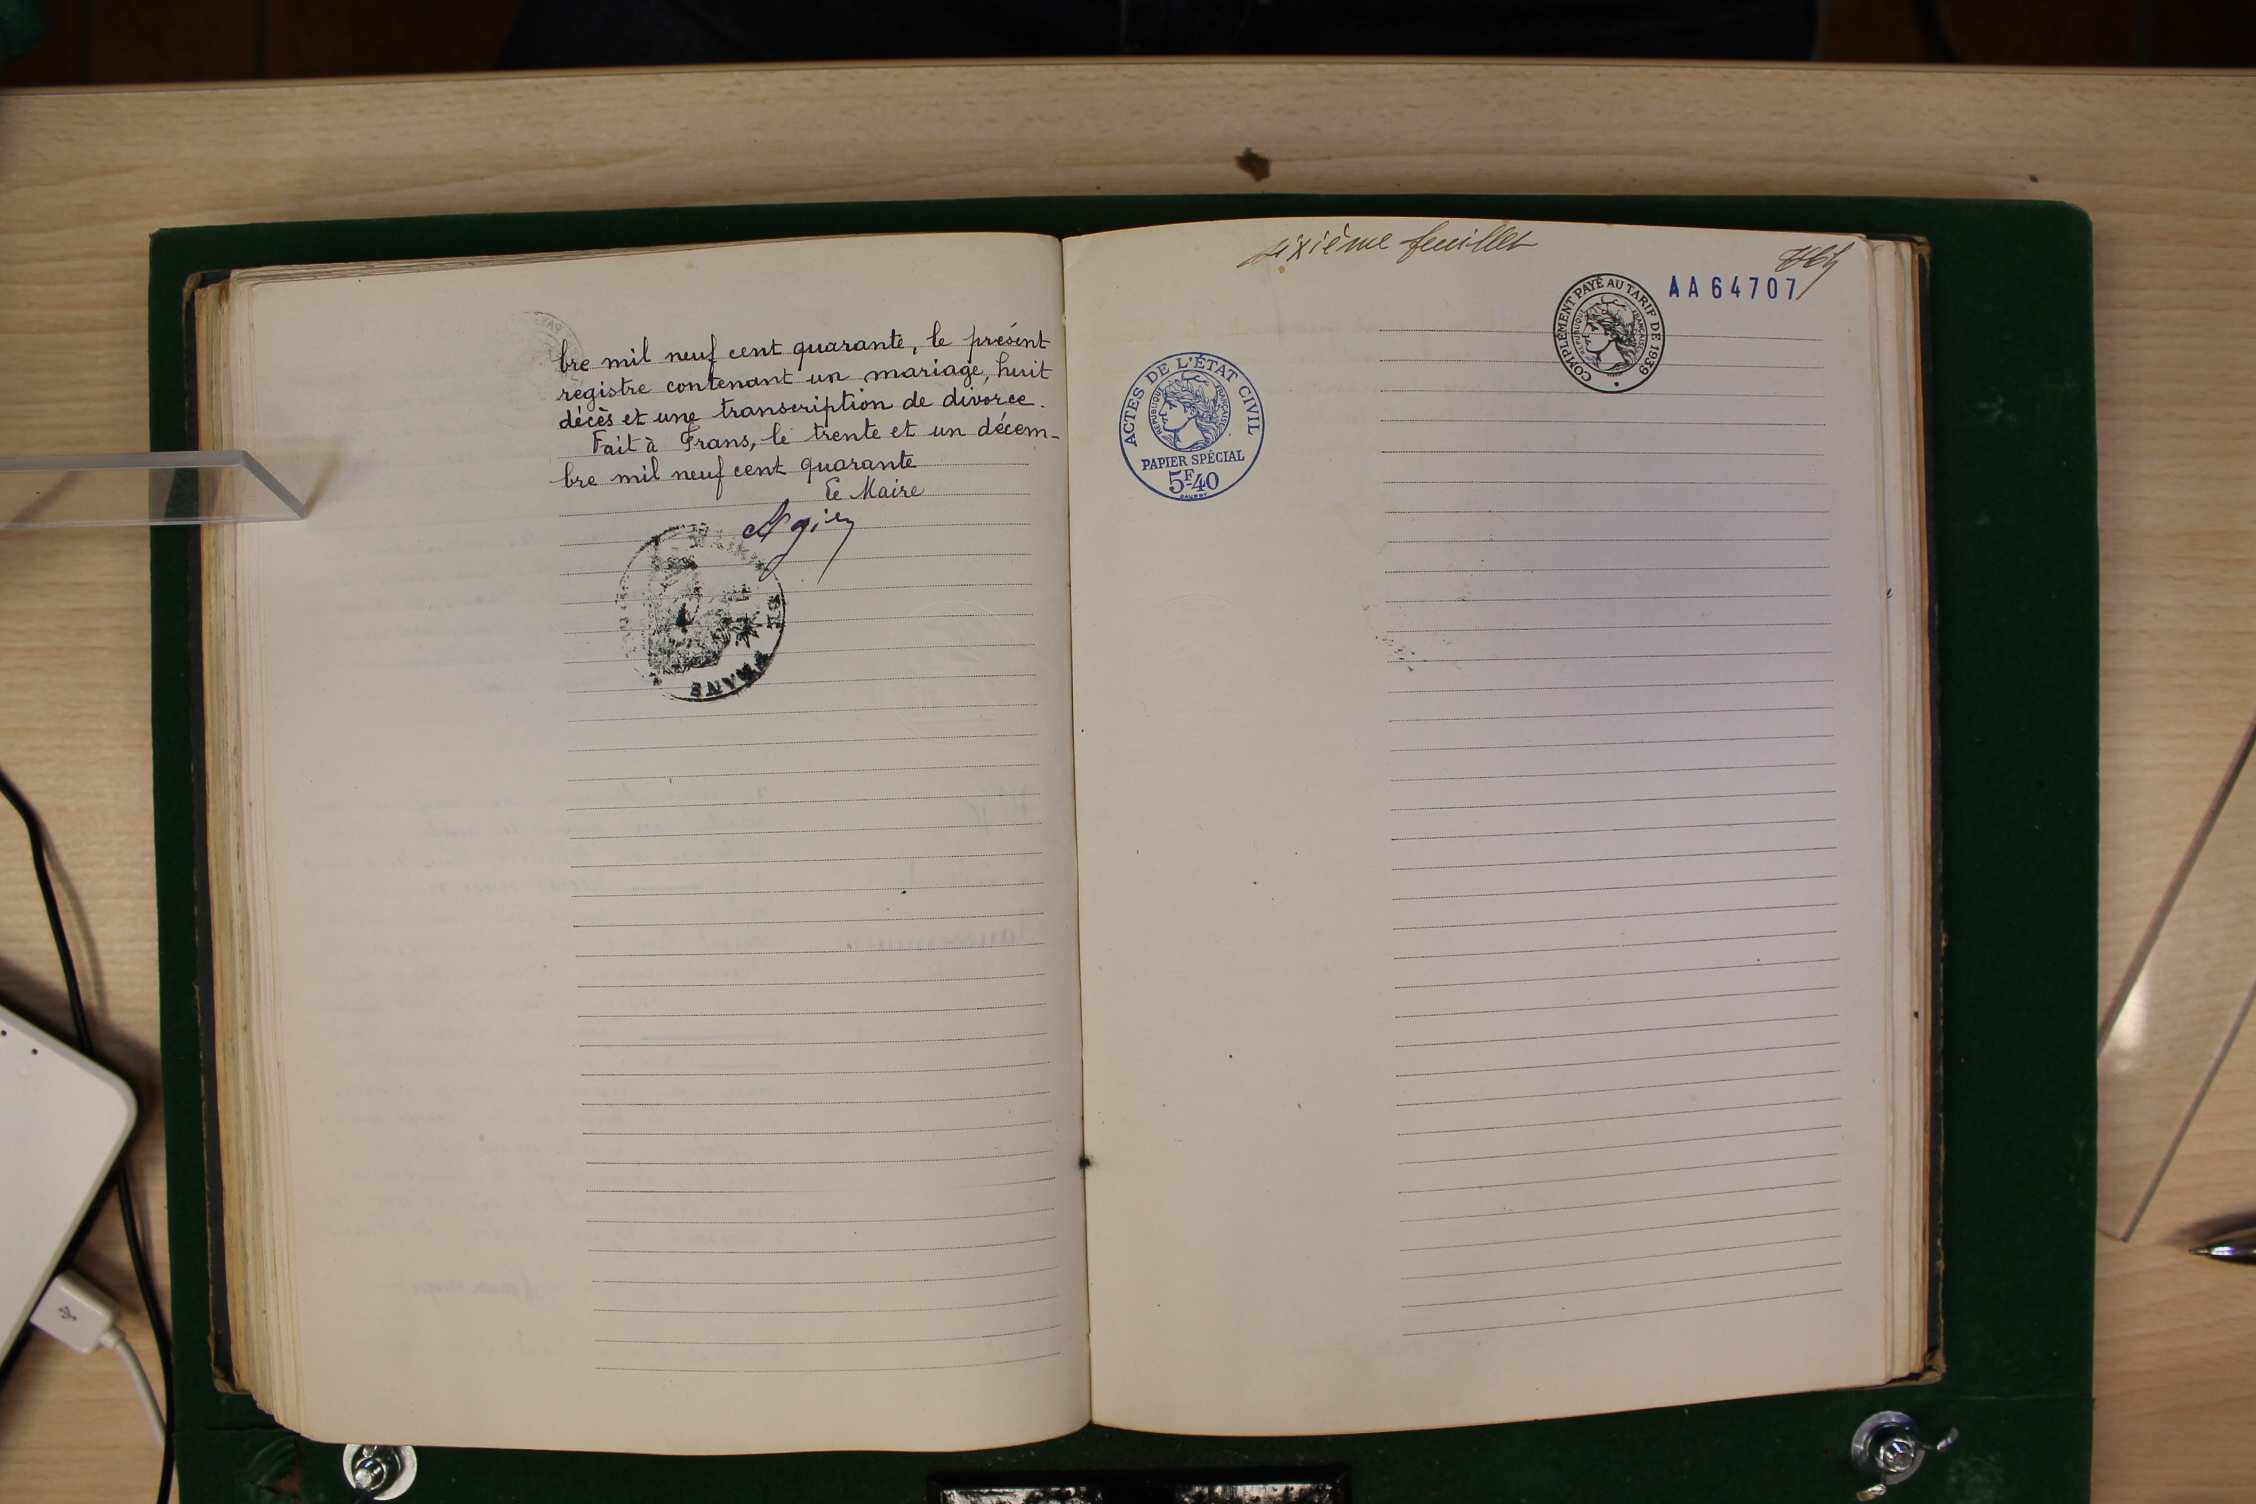 bre mil neuf cent quarante, le présent
registre contenant un mariage, huit
décès et une transcription de divorce.
Fait à Trans, le trente et un décem-
bre mil neuf cent quarante
Le Maire
DE TRANS
sixième feuillet
AA64707
COMPLÉMENT PAYÉ AU TARIF DE 1939
RÉPUBLIQUE FRANÇAISE
ACTES DE L'ÉTAT CIVIL
RÉPUBLIQUE FRANÇAISE
PAPIER SPÉCIAL
5F-40